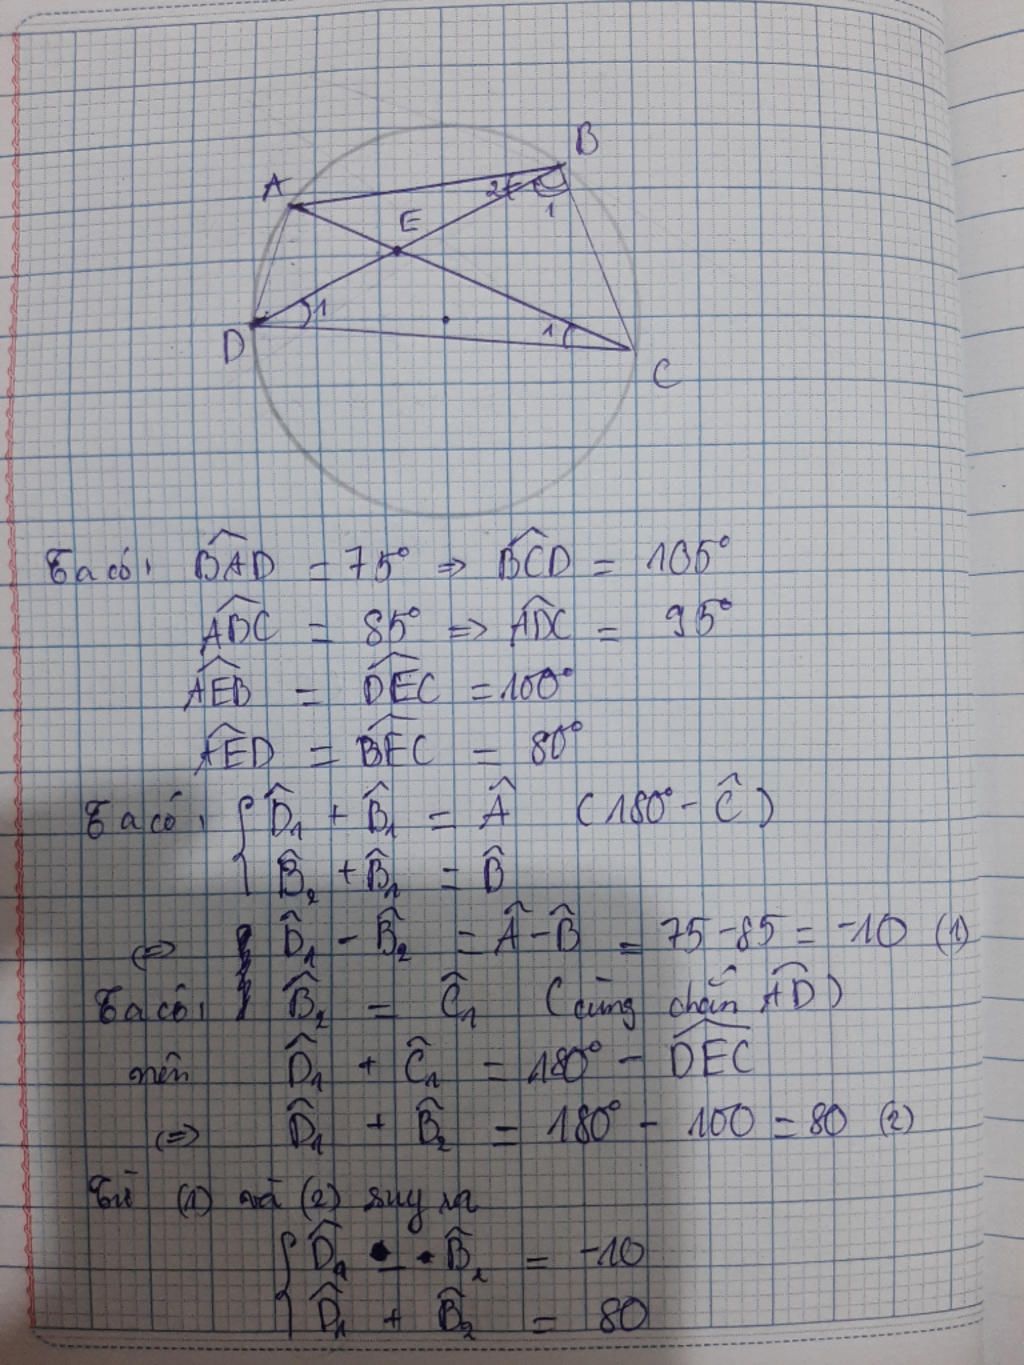 A
B
2
1
E
1
1
D
C
Ta có: B̂AD = 75° => B̂CD = 105°
ÂBC = 85° => ÂDC = 95°
ÂEB = D̂EC = 100°
ÂED = B̂EC = 80°
Ta có: { D̂₁ + B̂₁ = Â (180° - Ĉ)
B̂₂ + B̂₁ = B̂
<=> D̂₁ - B̂₂ = Â - B̂ = 75 - 85 = -10 (1)
Ta có: B̂₂ = Ĉ₁ (cùng chắn AD)
nên D̂₁ + Ĉ₁ = 180° - D̂EC
<=> D̂₁ + B̂₂ = 180° - 100 = 80 (2)
Từ (1) và (2) suy ra
{ D̂₁ - B̂₂ = -10
D̂₁ + B̂₂ = 80